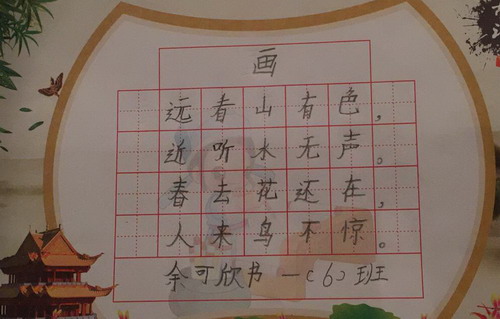 画
远看山有色，
近听水无声。
春去花还在，
人来鸟不惊。
余可欣书 一（6）班